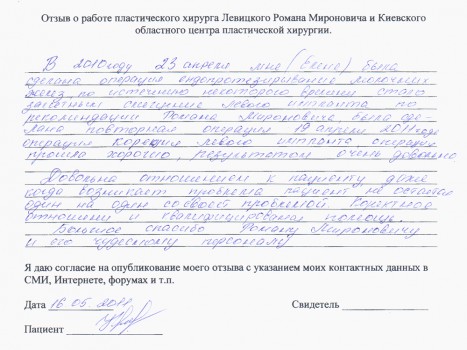 Отзыв о работе пластического хирурга Левицкого Романа Мироновича и Киевского
областного центра пластической хирургии.
В 2010 году 23 апреля мне (Елене) была
сделана операция эндопротезирование молочных
желез, по истечению некоторого времени стало
заметным смещение левого имплонта по
рекомендации Романа Мироновича, была сде-
лана повторная операция 19 апреля 2011 года
операция корекция левого имплонта, операция
прошла хорошо, результатом очень довольна
Довольна отношением к пациенту даже
когда возникает проблема пациент не остается
один на один со своей проблемой. Коректное
отношение и квалифицированая помощь.
Большое спасибо Роману Мироновичу
и его чудесному персоналу
Я даю согласие на опубликование моего отзыва с указанием моих контактных данных в
СМИ, Интернете, форумах и т.п.
Дата 16.05.2011 Свидетель
Пациент